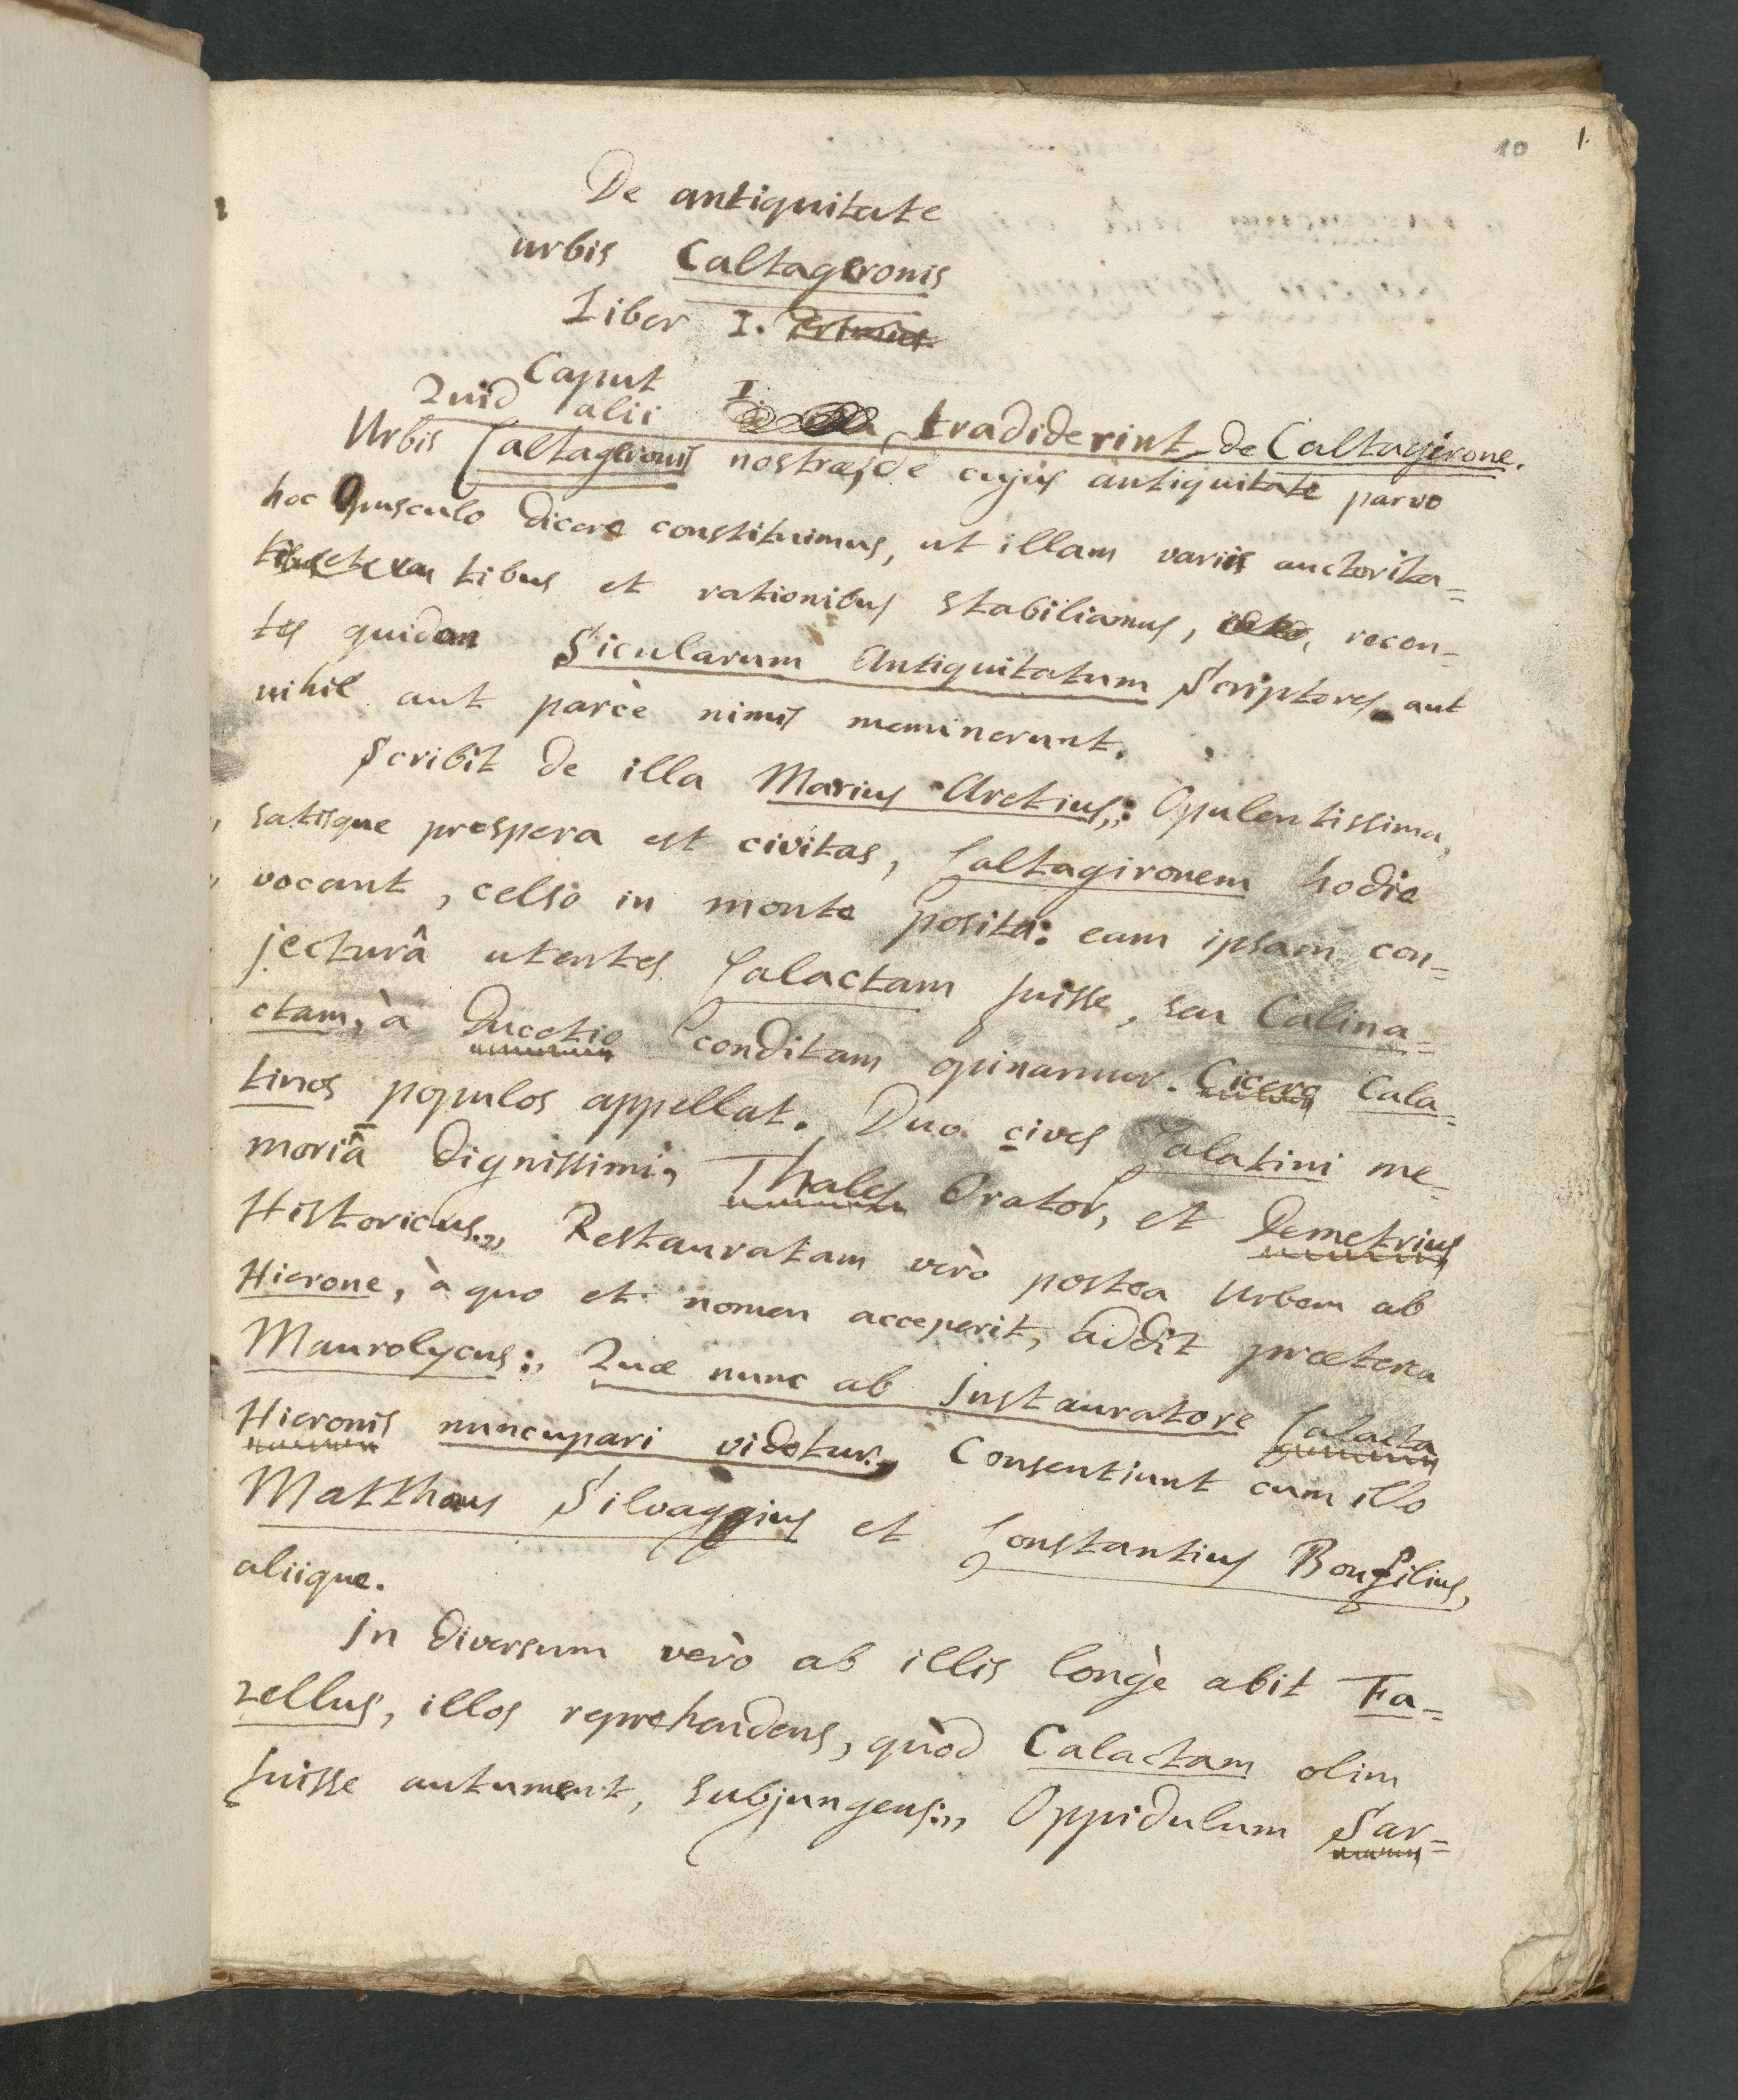 10 1.
De antiquitate
urbis Caltageronis
Liber I.
Caput I.
Quid alii tradiderint de Caltagirone.
Urbis Caltageronis nostrae, de cujus antiquitate parvo
hoc Opusculo dicere constituimus, ut illam variis auctorita=
tibus et rationibus stabiliamus, recen=
tes quidem Sicularum Antiquitatum Scriptores aut
nihil aut parcè nimis meminerunt.
Scribit de illa Marius Aretius,,: Opulentissima,
„ satisque prospera est civitas, Caltagironem hodie
„ vocant, celso in monte posita: eam ipsam con=
jecturâ utentes Calactam fuisse, seu Calina=
ctam, à Ducetio conditam opinamur. Cicero Cala=
tinos populos appellat. Duo cives Calatini me=
moriâ dignissimi, Thales Orator, et Demetrius
Historicus.,, Restauratam verò postea Urbem ab
Hierone, à quo et nomen acceperit, addit praeterea
Maurolycus:,, Quae nunc ab Instauratore Calacta
Hieronis nuncupari videtur.,, Consentiunt cum illo
Matthaeus Silvaggius et Constantius Bonfilius,
aliique.
In diversum verò ab illis longè abit Fa=
zellus, illos reprehendens, quòd Calactam olim
fuisse autument, subjungens:,, Oppidulum Sar=